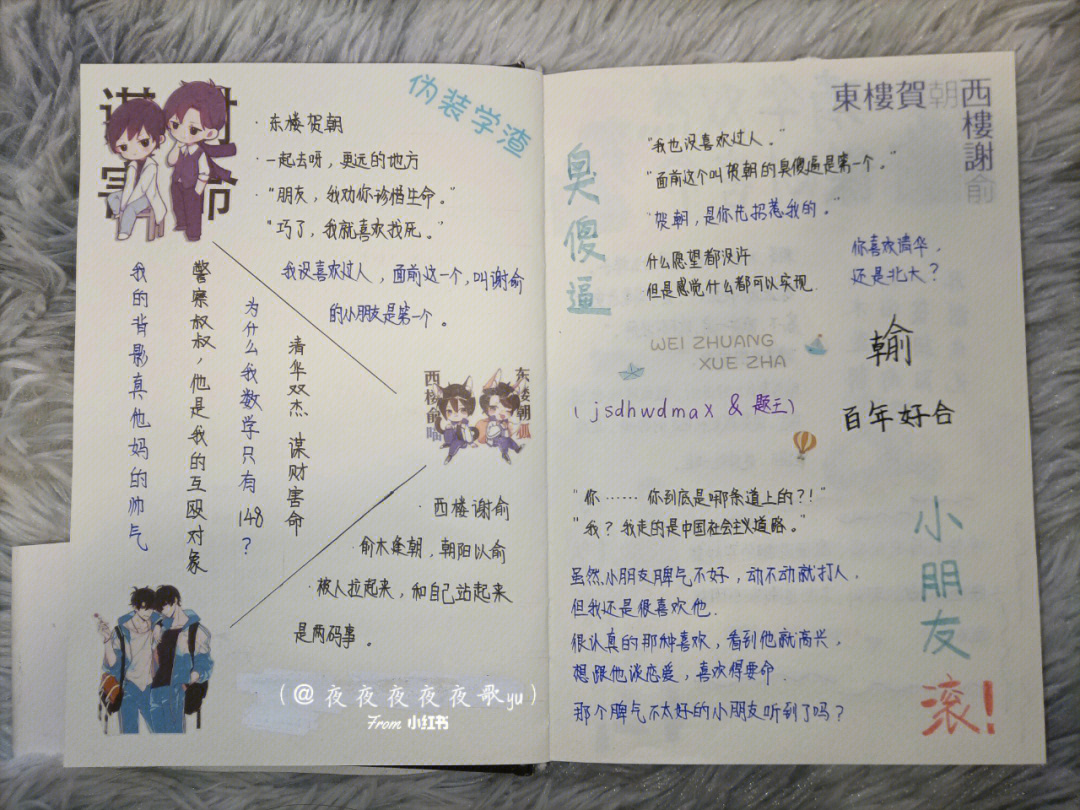 伪装学渣
谋财
害命
·东楼贺朝
·一起去呀，更远的地方
·“朋友，我劝你珍惜生命。”
“巧了，我就喜欢找死。”
我没喜欢过人，面前这一个，叫谢俞
的小朋友是第一个。
我的背影真他妈的帅气
警察叔叔，他是我的互殴对象
为什么我数学只有148？
清华双杰 谋财害命
西楼俞喵
东楼朝狐
·西楼谢俞
·俞木逢朝，朝阳以俞
·被人拉起来，和自己站起来
是两码事。
(@夜夜夜夜夜歌yu)
From 小红书
東樓賀朝
西樓謝俞
臭傻逼
“我也没喜欢过人。”
“面前这个叫贺朝的臭傻逼是第一个。”
“贺朝，是你先招惹我的。”
什么愿望都没许
但是感觉什么都可以实现.
你喜欢清华，
还是北大？
WEI ZHUANG
XUE ZHA
(jsdhwdmaX & 题王)
百年好合
“你……你到底是哪条道上的？！”
“我？我走的是中国社会主义道路。”
虽然小朋友脾气不好，动不动就打人，
但我还是很喜欢他.
很认真的那种喜欢，看到他就高兴，
想跟他谈恋爱，喜欢得要命.
那个脾气不太好的小朋友听到了吗？
小朋友
滚！